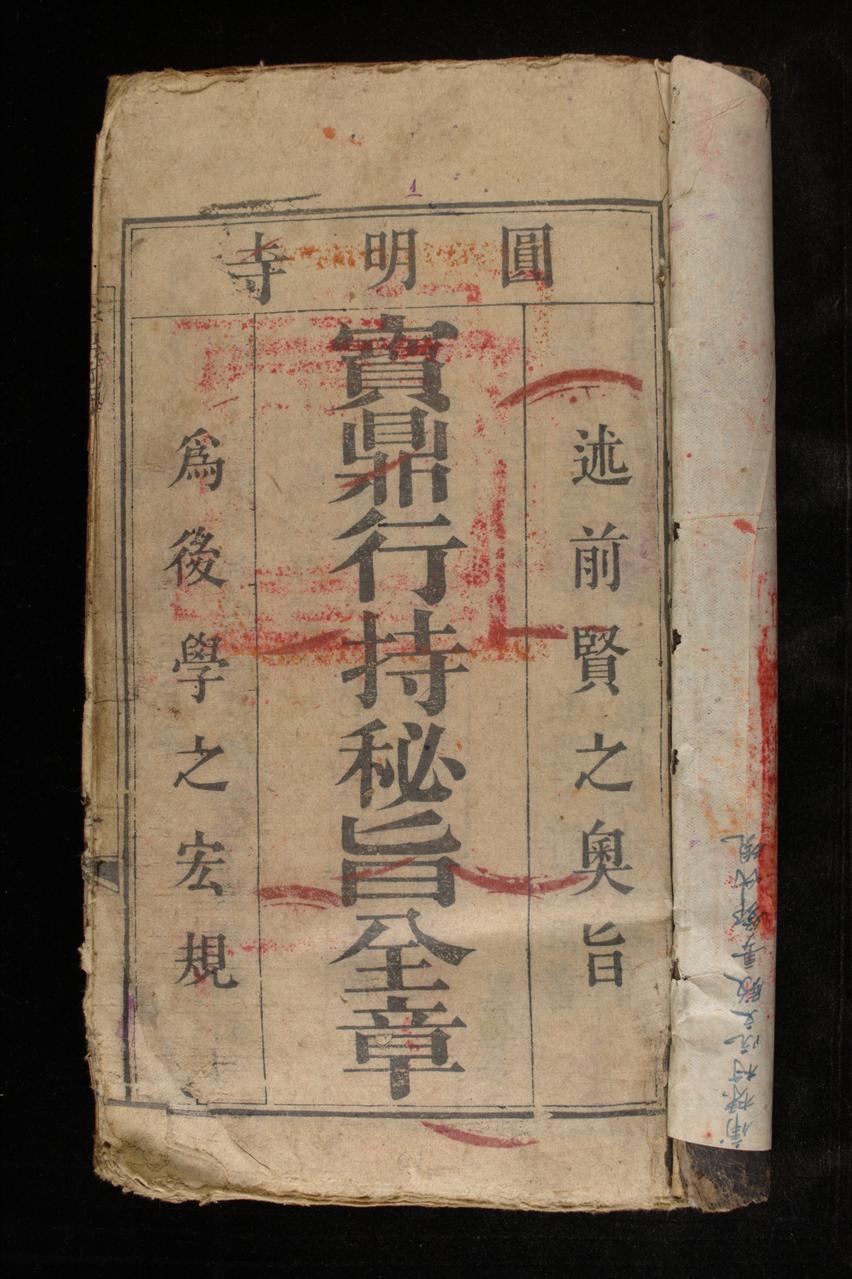 圓明寺
述前賢之奥旨
寳鼎行持秘旨全章
爲後學之宏規